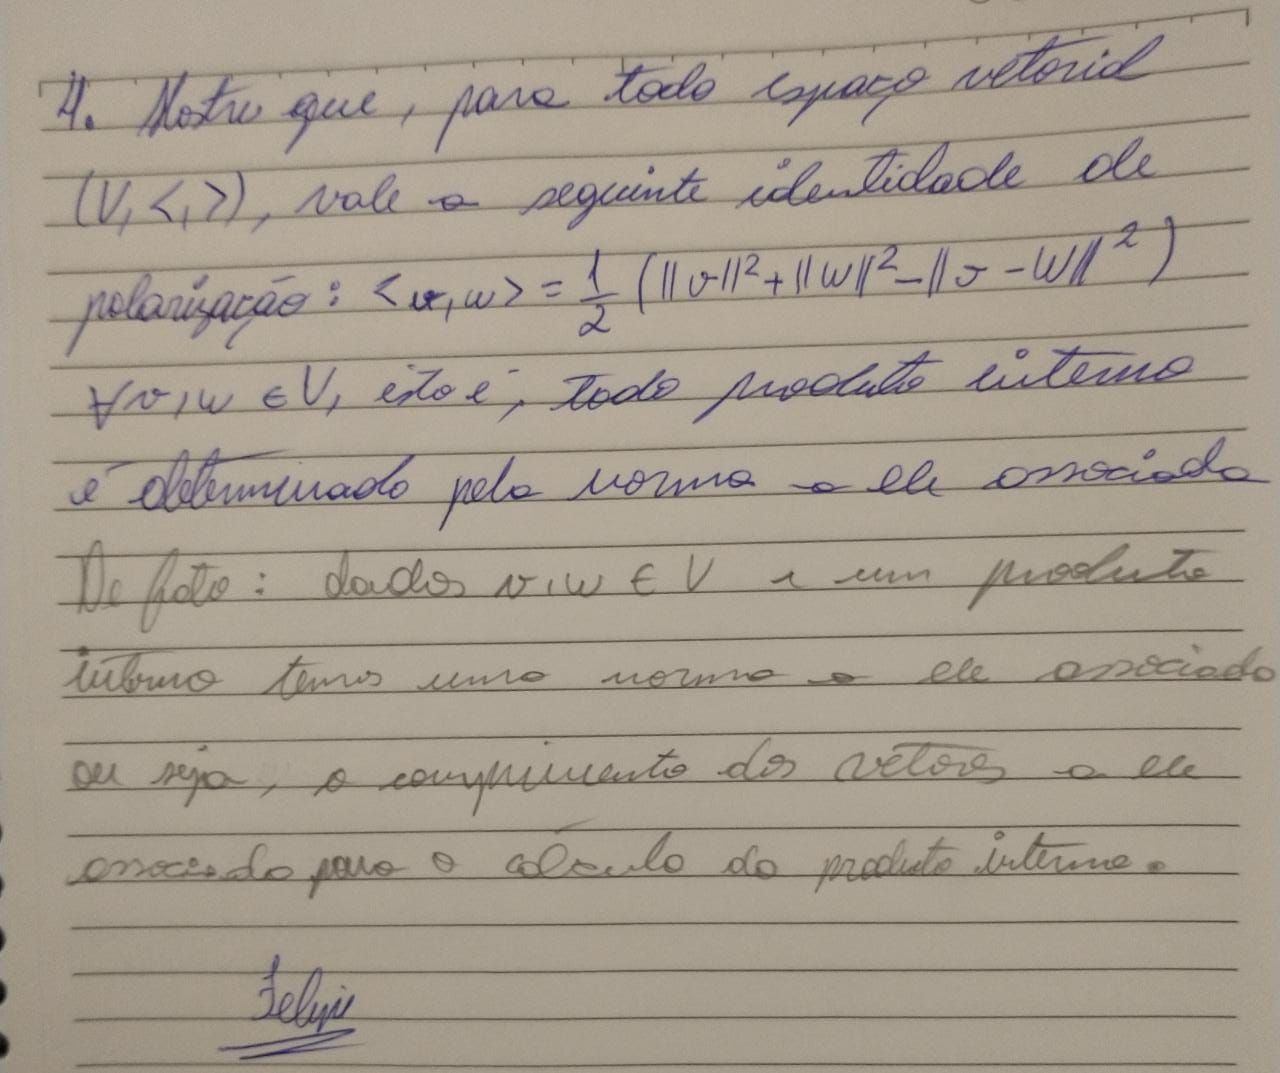 4. Mostre que, para todo espaço vetorial
(V, <,>), vale a seguinte identidade de
polarização: <v,w> = 1/2 (||v||² + ||w||² - ||v - w||²)
∀v,w ∈ V, isto é, todo produto interno
é determinado pela norma a ele associada
De fato: dados v,w ∈ V e um produto
interno temos uma norma a ele associado
ou seja, o comprimento dos vetores a ele
associado para o cálculo do produto interno.
Felipe